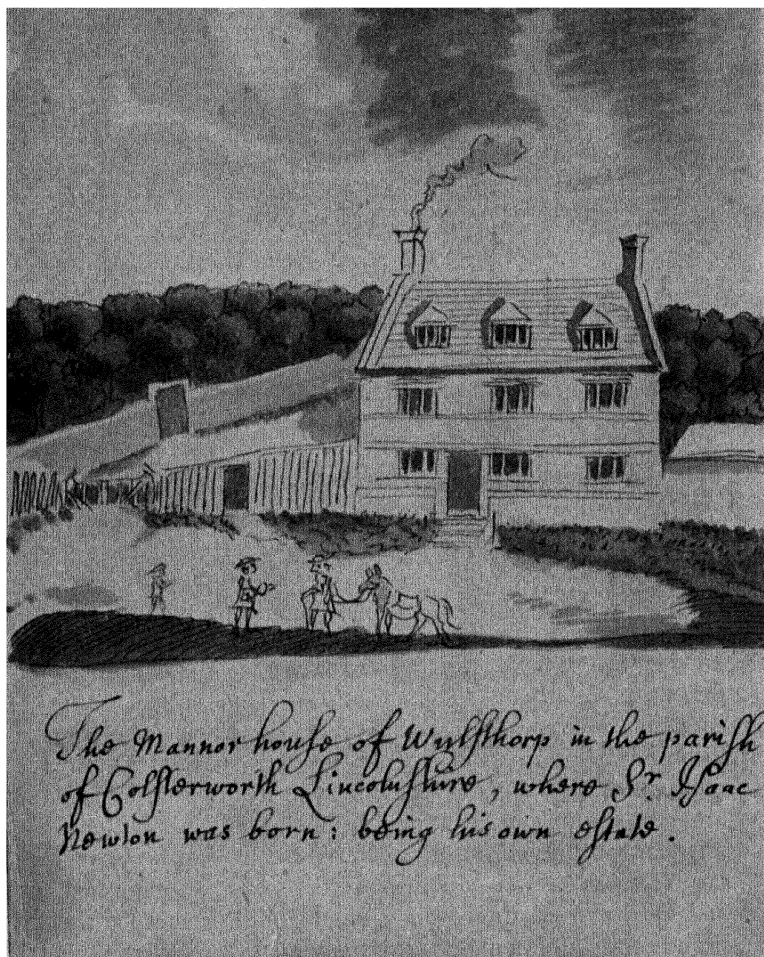 The Mannor house of Wulsthorp in the parish
of Colsterworth Lincolnshire, where Sr. Isaac
Newton was born: being his own estate.